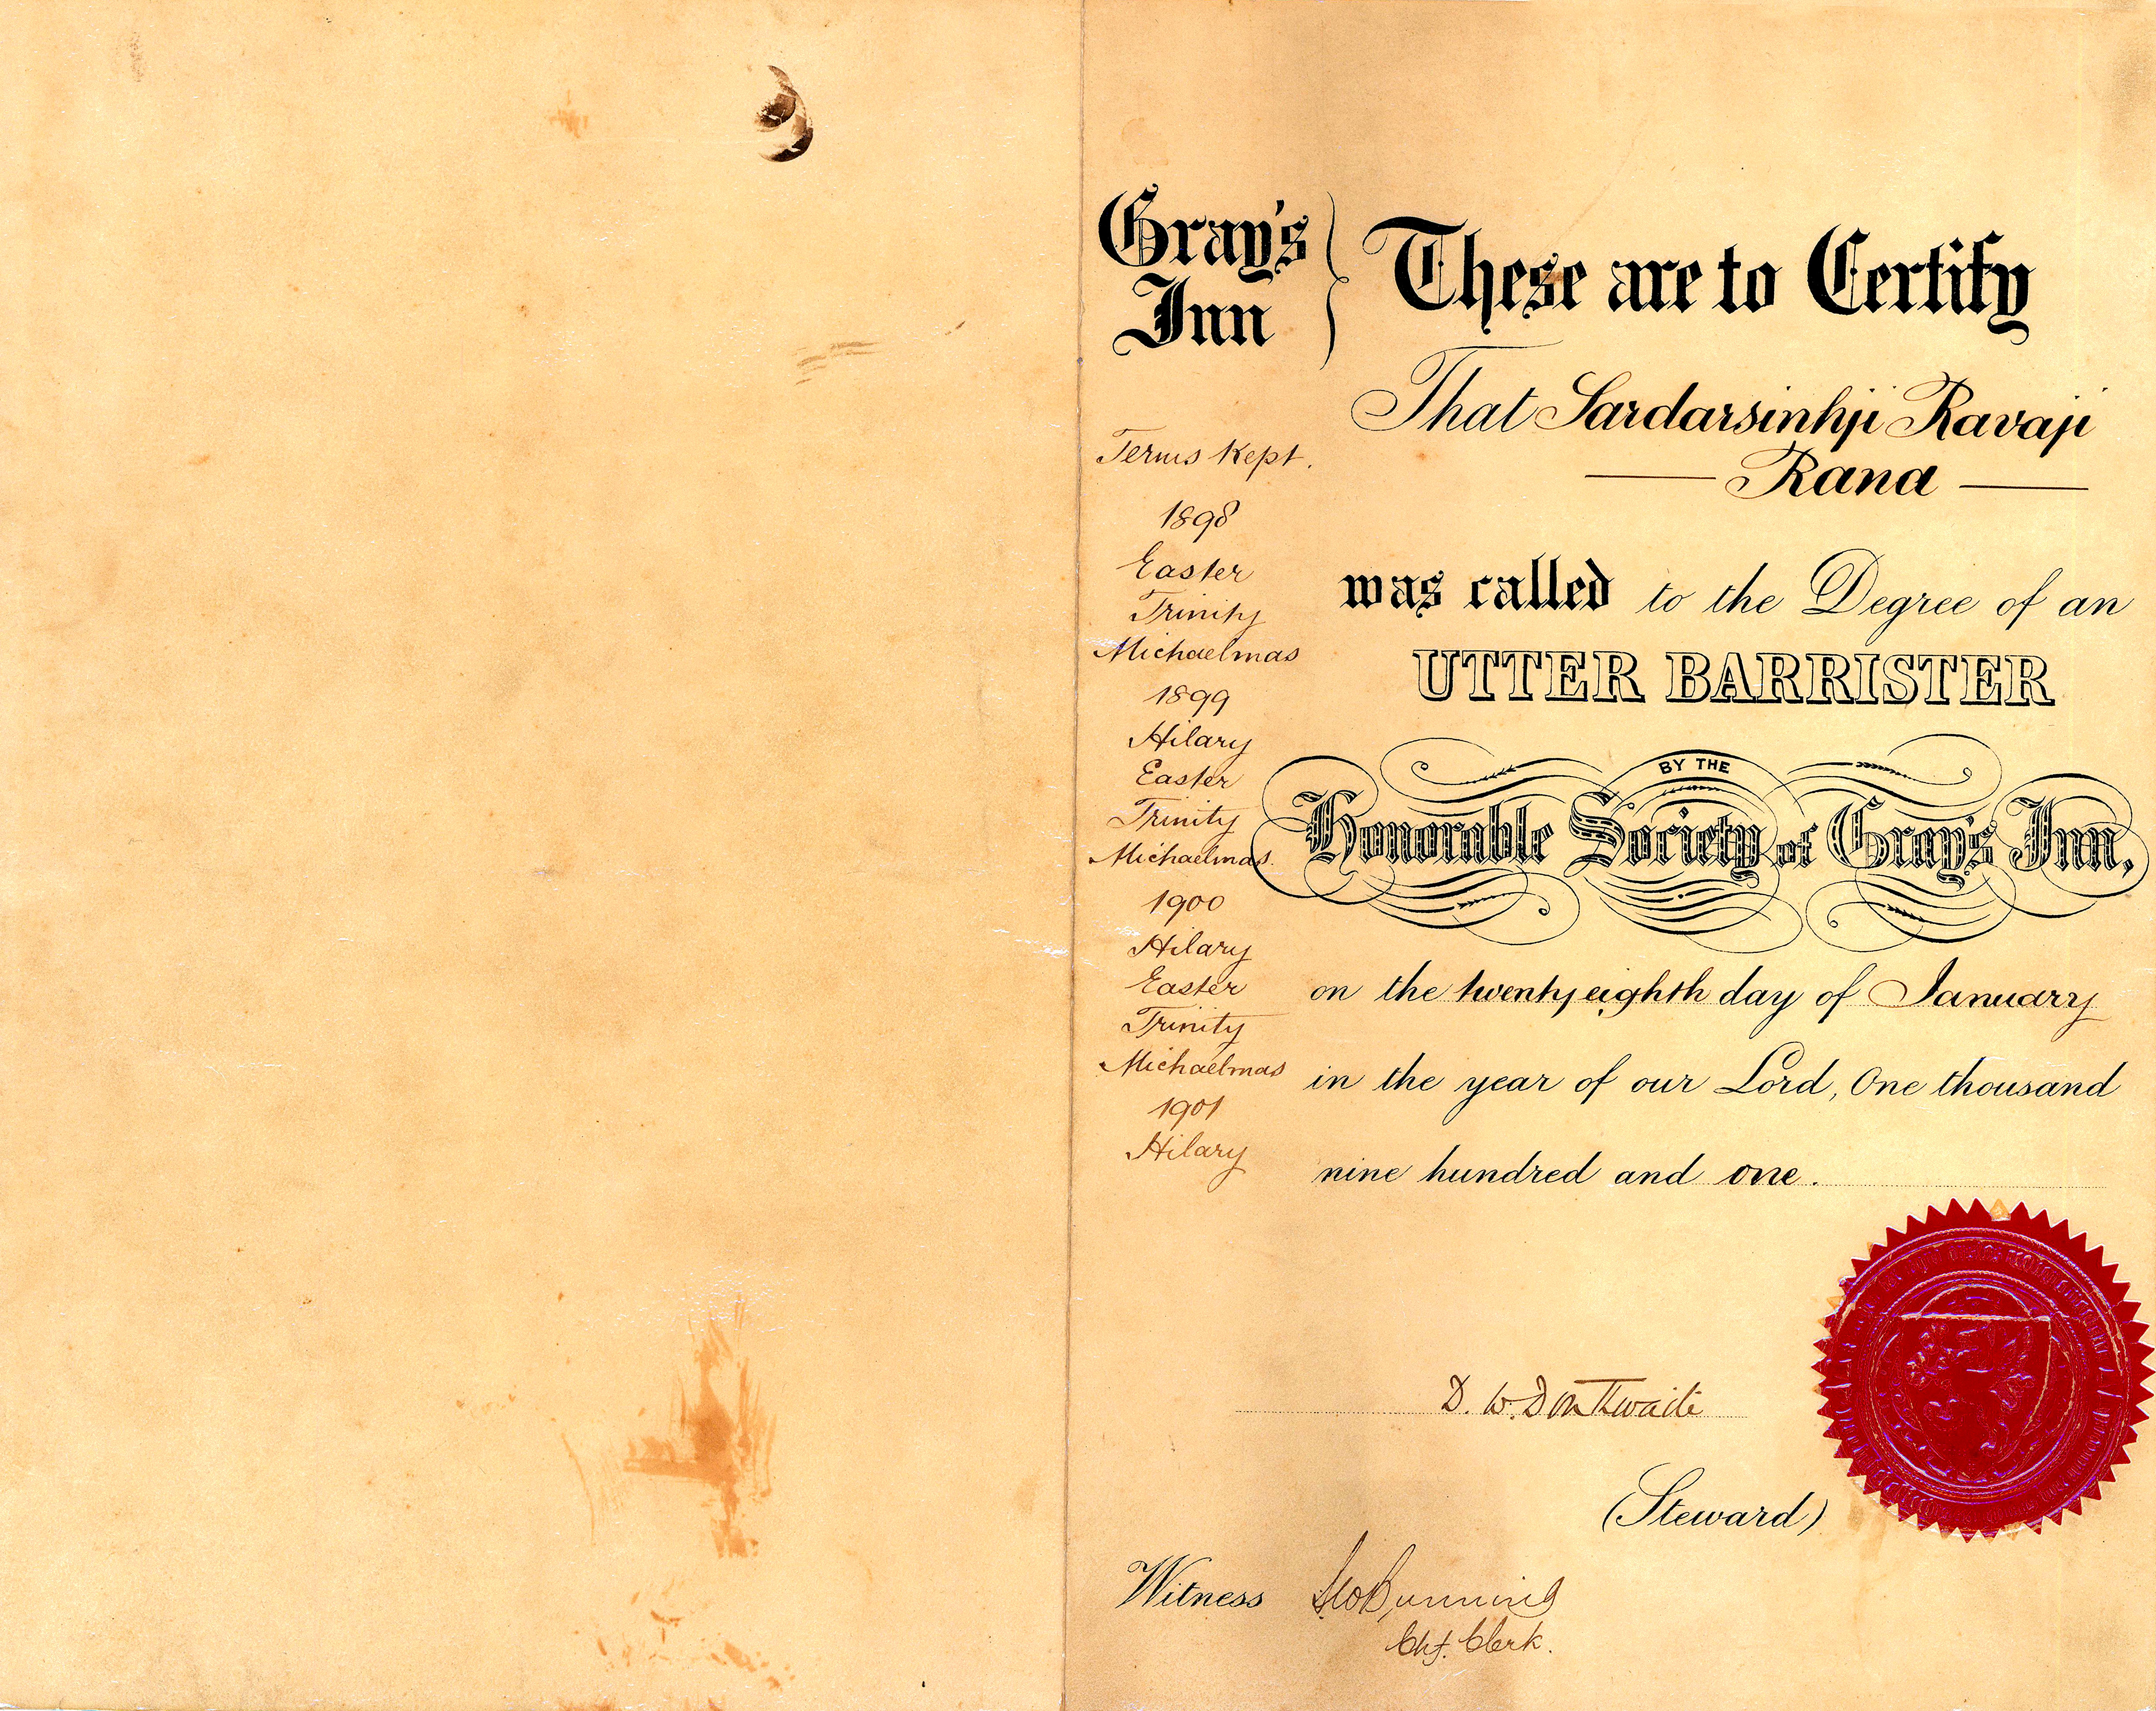 Gray's
Inn
These are to Certify
That Sardarsinhji Ravaji
Rana
was called to the Degree of an
UTTER BARRISTER
BY THE
Honorable Society of Gray's Inn,
on the twenty eighth day of January
in the year of our Lord, One thousand
nine hundred and one.
Terms Kept.
1898
Easter
Trinity
Michaelmas
1899
Hilary
Easter
Trinity
Michaelmas.
1900
Hilary
Easter
Trinity
Michaelmas
1901
Hilary
D. W. Douthwaite
(Steward)
Witness
Chf. Clerk.